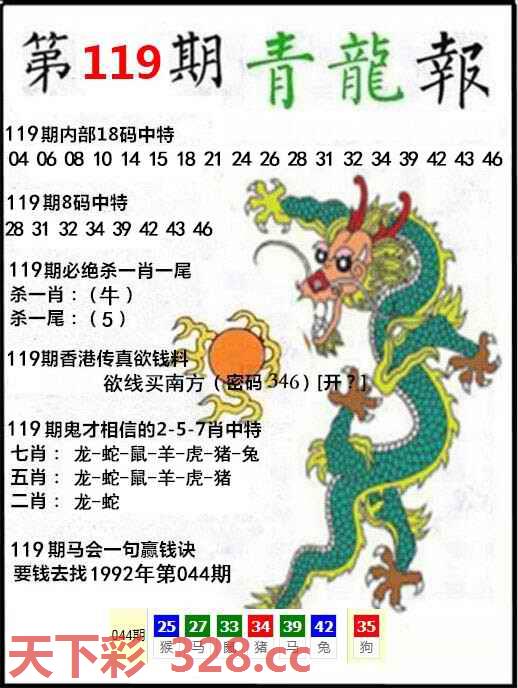 第119期青龍報
119期内部18码中特
04 06 08 10 14 15 18 21 24 26 28 31 32 34 39 42 43 46
119期8码中特
28 31 32 34 39 42 43 46
119期必绝杀一肖一尾
杀一肖：（牛）
杀一尾：（5）
119期香港传真欲钱料
欲线买南方（密码346）[开？]
119期鬼才相信的2-5-7肖中特
七肖：龙-蛇-鼠-羊-虎-猪-兔
五肖：龙-蛇-鼠-羊-虎-猪
二肖：龙-蛇
119期马会一句赢钱诀
要钱去找1992年第044期
044期 25 27 33 34 39 42 35
猴 马 鼠 猪 马 兔 狗
天下彩 328.cc